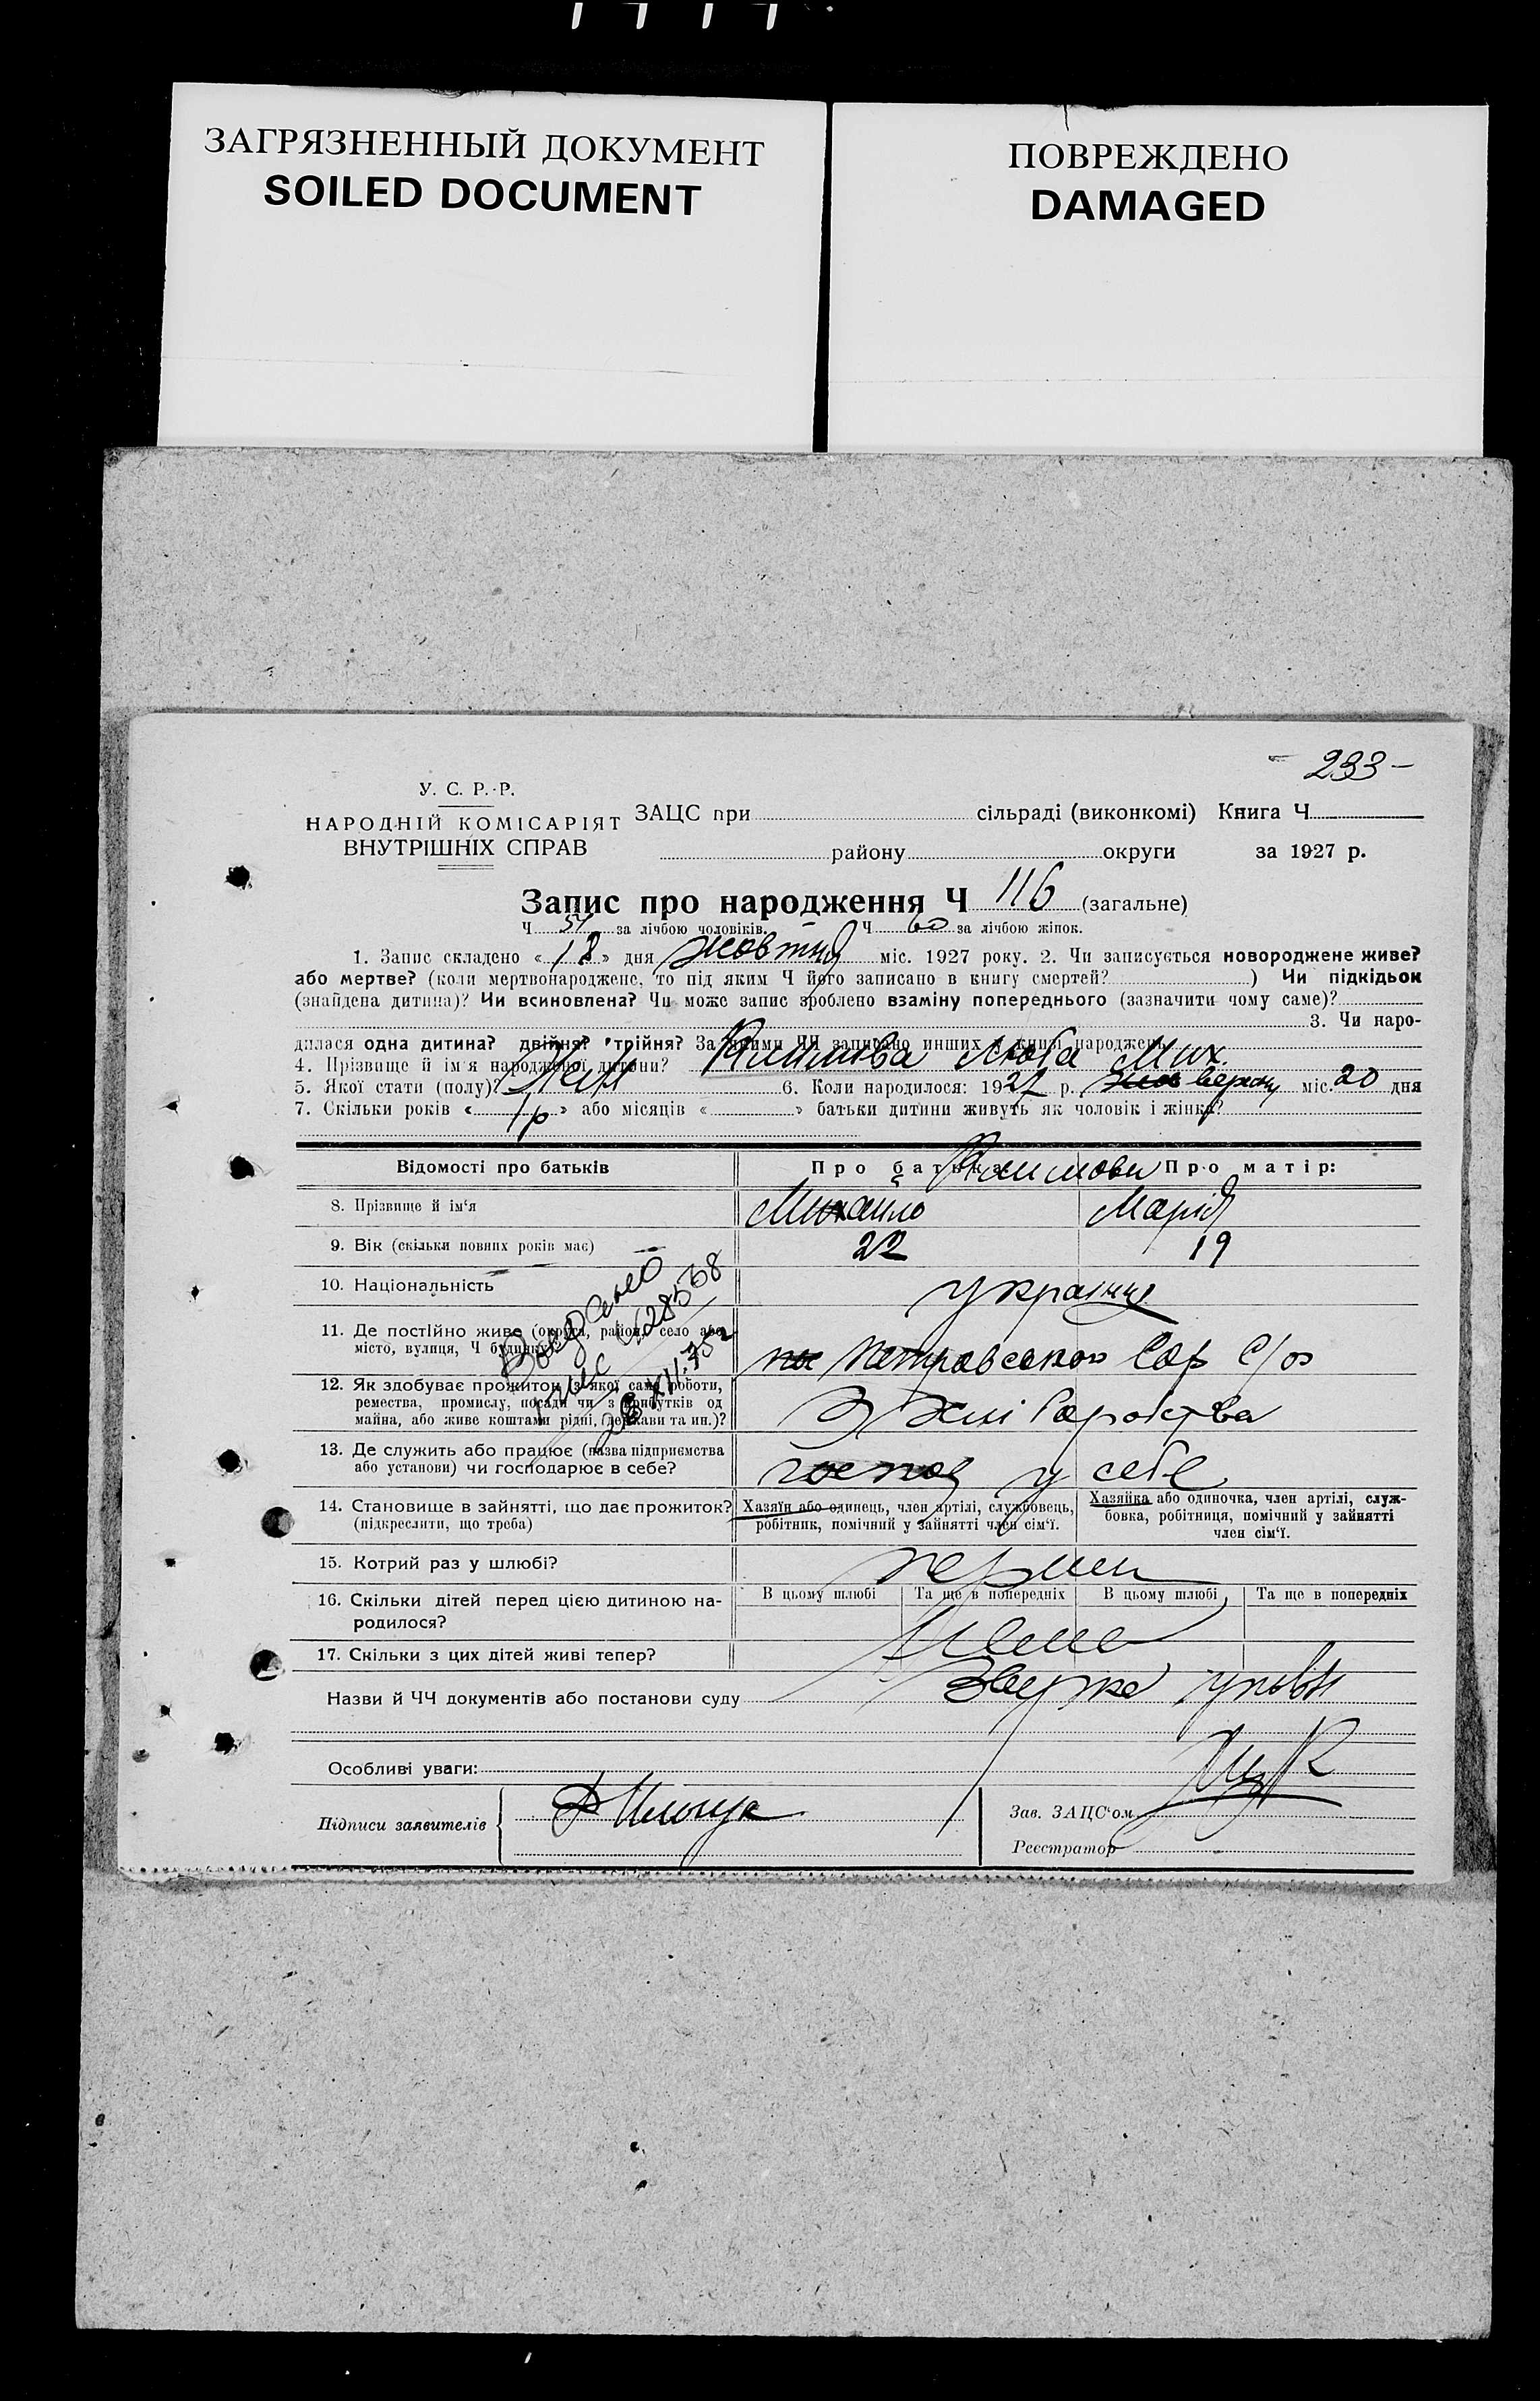 ЗАГРЯЗНЕННЫЙ ДОКУМЕНТ
SOILED DOCUMENT
ПОВРЕЖДЕНО
DAMAGED
- 233 -
У. С. Р.-Р.
НАРОДНІЙ КОМІСАРІЯТ
ВНУТРІШНІХ СПРАВ
ЗАЦС при сільраді (виконкомі) Книга Ч
району округи за 1927 р.
Запис про народження Ч 116 (загальне)
Ч за лічбою чоловіків. Ч 60 за лічбою жінок.
1. Запис складено « 18 » дня жовтня міс. 1927 року. 2. Чи записується новороджене живе?
або мертве? (коли мертвонароджене, то під яким Ч його записано в книгу смертей? ) Чи підкідьок
(знайдена дитина)? Чи всиновлена? Чи може запис зроблено взаміну попереднього (зазначити чому саме)?
3. Чи наро-
дилася одна дитина? двійня? трійня? За якими ЧЧ записано инших у книзі народжень
4. Прізвище й ім'я народженої дитини? Люба Мих.
5. Якої стати (полу)? Жен 6. Коли народилося: 1927 р. міс. 20 дня
7. Скільки років « 1р » або місяців « » батьки дитини живуть як чоловік і жінка?
Відомості про батьків
Про батька: Про матір:
8. Прізвище й ім‘я Михайло Марія
9. Вік (скільки повних років має) 22 19
10. Національність українці
11. Де постійно живе (округа, район, село або
місто, вулиця, Ч будинку)
12. Як здобуває прожиток (з якої саме роботи,
ремества, промислу, посади чи з прибутків од
майна, або живе коштами рідні, держави та ин.)?
13. Де служить або працює (назва підприємства
або установи) чи господарює в себе? у себе
14. Становище в зайнятті, що дає прожиток?
(підкреслити, що треба)
Хазяїн або одинець, член артілі, службовець,
робітник, помічний у зайнятті член сім‘ї.
Хазяйка або одиночка, член артілі, служ-
бовка, робітниця, помічний у зайнятті
член сім‘ї.
15. Котрий раз у шлюбі?
16. Скільки дітей перед цією дитиною на-
родилося?
В цьому шлюбі Та ще в попередніх В цьому шлюбі Та ще в попередніх
17. Скільки з цих дітей живі тепер?
Назви й ЧЧ документів або постанови суду
Особливі уваги:
Підписи заявителів
Зав. ЗАЦС‘ом
Реєстратор